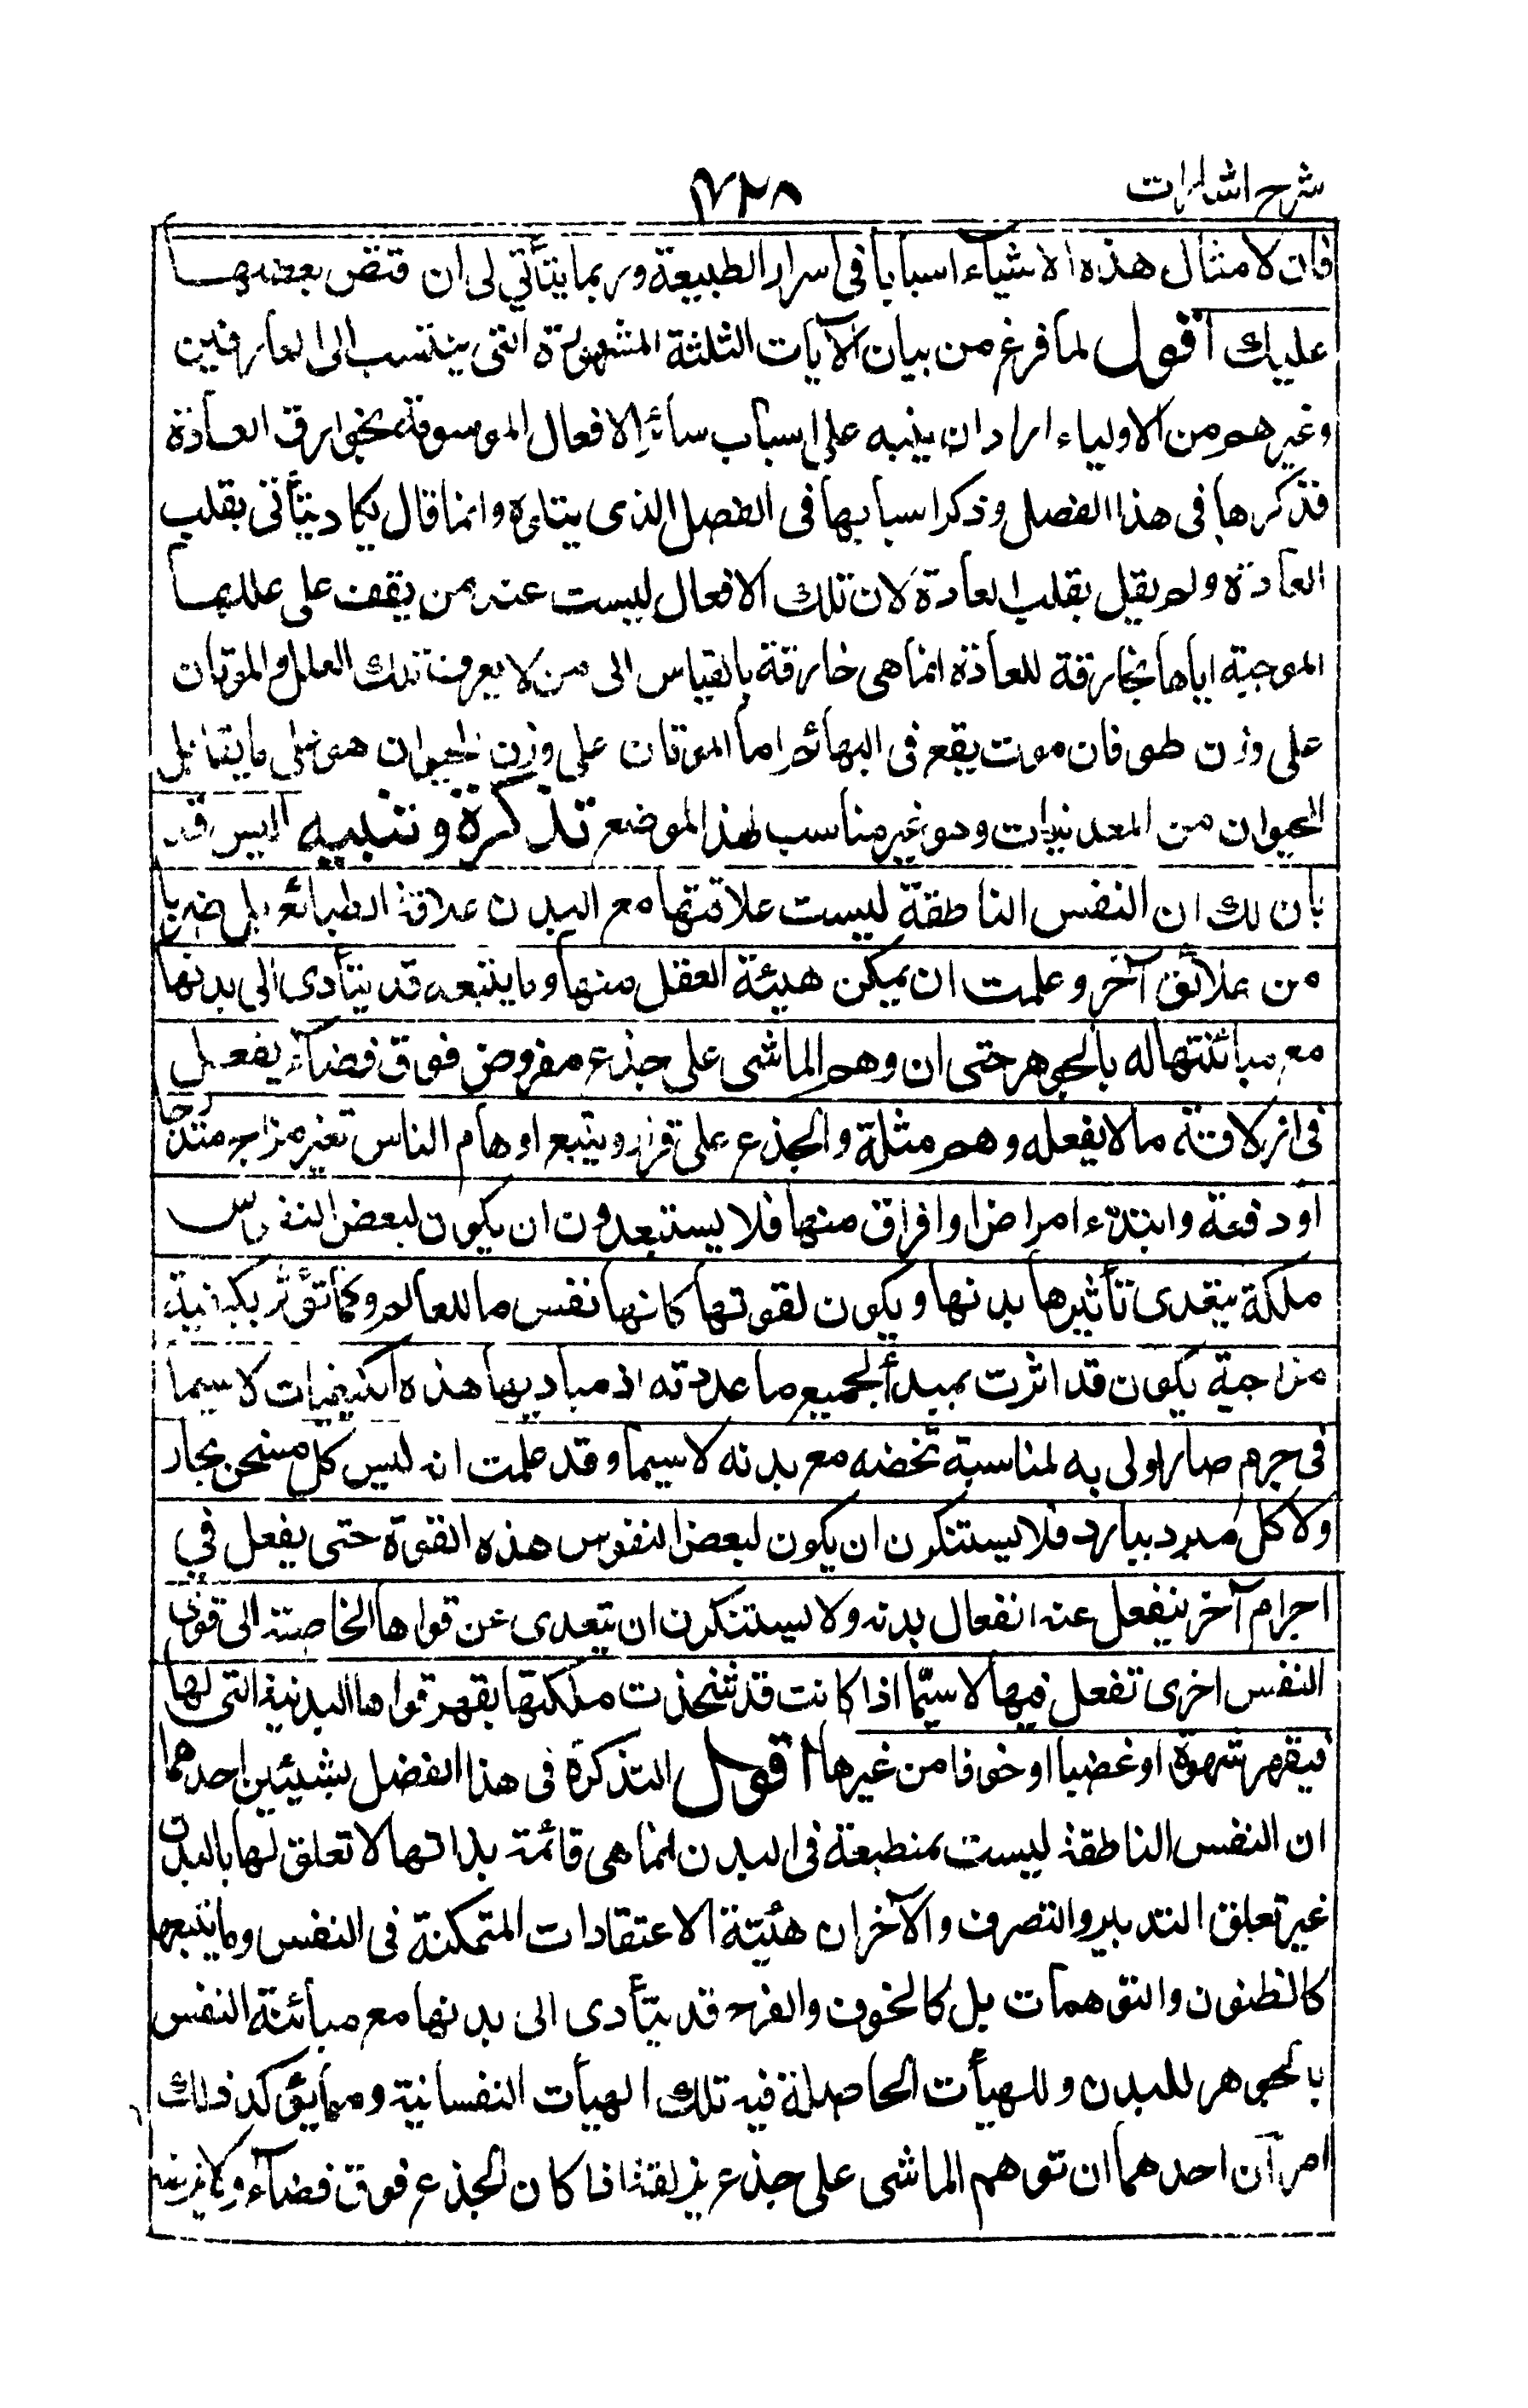 شرح اشارات
٧٢٨
فان لامثال هذه الاشياء اسبابا فى اسرار الطبيعة وربما يتأتي لى ان قتض بعضها
عليك اقول لما فرغ من بيان الآيات الثلثة المشهورة التى ينتسب الى العارفين
وغيرهم من الاولياء اراد ان ينبه على اسباب سائر الافعال الموسومة بخوارق العادة
فذكرها فى هذا الفصل وذكر اسبابها فى الفصل الذى يتلوه وانما قال يكاد يتأتى بقلب
العادة ولم يقل بقلب العادة لان تلك الافعال ليست عند من يقف على عللها
الموجبة اياها بخارقة للعادة انما هى خارقة بالقياس الى من لا يعرف تلك العلل والموتان
على وزن طوفان موت يقع فى البهائم اما الموتان على وزن الحيوان هو على ما يقابل
الحيوان من المعدنيات وهو غير مناسب لهذا الموضع تذكرة وتنبيه اليس قد
بان لك ان النفس الناطقة ليست علاقتها مع البدن علاقة الطبائع بل ضربا
من علائق آخر وعلمت ان يمكن هيئة العقل منها وما يتبعه قد يتأدى الى بدنها
مع مبائنتها له بالجوهر حتى ان وهم الماشى على جذع مفروض فوق فضاء يفعل
فى ازلاقه ما لا يفعله وهم مثله والجذع على قرار ويتبع اوهام الناس تغير مزاج متدرجا
او دفعة وابتداء امراض او افراق منها فلا يستبعدون ان يكون لبعض النفوس
ملكة يتعدى تأثيرها بدنها ويكون لقوتها كانها نفس ما للعالم وكما تؤثر بكيفية
مزاجية يكون قد اثرت بمبدأ لجميع ما عددته اذ مباديها هذه الكيفيات لا سيما
فى جرم صار اولى به لمناسبة تخصه مع بدنه لا سيما وقد علمت انه ليس كل مسخن بحار
ولا كل مبرد ببارد فلا يستنكرن ان يكون لبعض النفوس هذه القوة حتى يفعل في
اجرام آخر ينفعل عنه انفعال بدنه ولا يستنكرن ان يتعدى عن قواها الخاصة الى قوى
النفس اخرى تفعل فيها لا سيّما اذا كانت قد شحذت ملكتها بقهر قواها البدنية التى لها
فيقهر شهوة او غضبا او خوفا من غيرها اقول التذكرة فى هذا الفصل بشيئين احدهما
ان النفس الناطقة ليست بمنطبعة فى البدن انما هى قائمة بذاتها لا تعلق لها بالبدن
غير تعلق التدبير والتصرف والآخر ان هيئة الاعتقادات المتمكنة فى النفس وما يتبعها
كالظنون والتوهمات بل كالخوف والفرح قد يتأدى الى بدنها مع مبائنة النفس
بالجوهر للبدن وللهيأت الحاصلة فيه تلك الهيأت النفسانية ومما يؤكد ذلك
امرآن احدهما ان توهم الماشى على جذع يزلقه اذا كان الجذع فوق فضاء ولا يزلقه